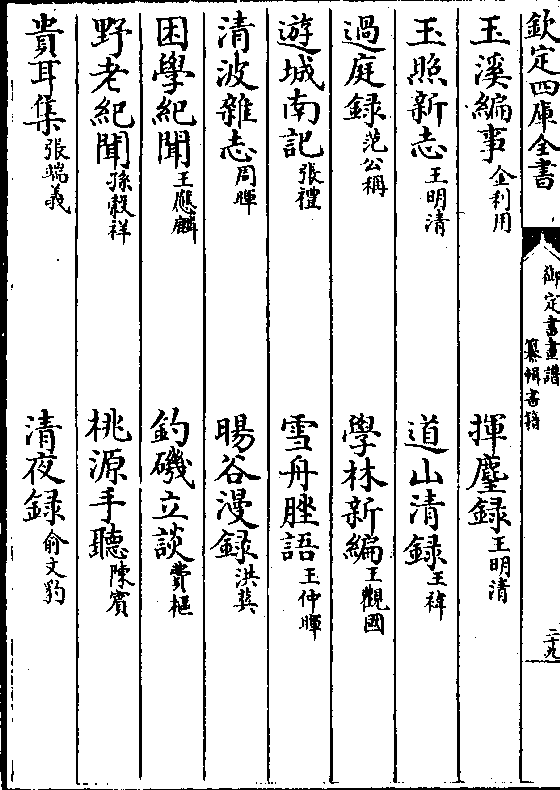 欽定四庫全書
御定書畫譜
纂輯書籍
二十九
玉溪編事金利用
揮麈録王明清
玉照新志王明清
道山清録王暐
過庭録范公稱
學林新編王觀國
遊城南記張禮
雪舟脞語王仲暉
清波雜志周暉
暘谷漫録洪巽
困學紀聞王應麟
釣磯立談費樞
野老紀聞孫穀祥
桃源手聽陳賓
貴耳集張端義
清夜録俞文豹